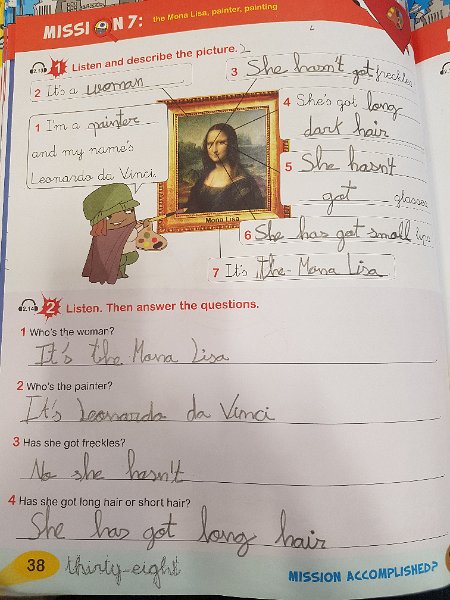 MISSION 7: the Mona Lisa, painter, painting
2.13 1 Listen and describe the picture.
2 It's a woman
3 She hasn't got freckles
1 I'm a painter
and my name's
Leonardo da Vinci.
4 She's got long
dark hair
5 She hasn't
got glasses
Mona Lisa
6 She has got small lips
7 It's the Mona Lisa
2.14 2 Listen. Then answer the questions.
1 Who's the woman?
It's the Mona Lisa
2 Who's the painter?
It's Leonardo da Vinci
3 Has she got freckles?
No she hasn't
4 Has she got long hair or short hair?
She has got long hair
38 thirty-eight
MISSION ACCOMPLISHED?